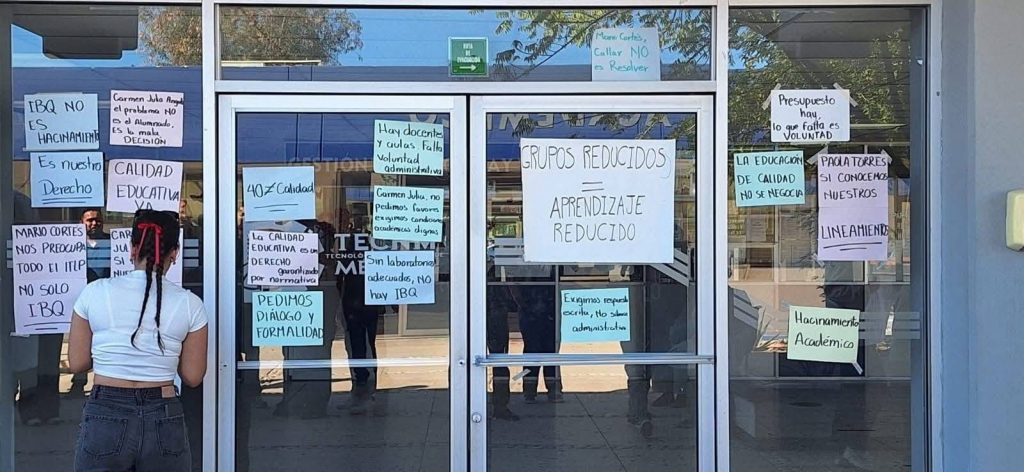 IBQ NO
ES
HACINAMIENTO
Es nuestro
Derecho
Carmen Julia Angul
el problema NO
es el Alumnado,
Es la mala
DECISIÓN
CALIDAD
EDUCATIVA
YA
MARIO CORTES
NOS PREOCUPA
TODO EL ITLP
NO SOLO
IBQ
RUTA
DE
EVACUACIÓN
Mario Cortés,
Callar NO
es Resolver
40% Calidad
La CALIDAD
EDUCATIVA es un
DERECHO
garantizado
por normativa
PEDIMOS
DIÁLOGO y
FORMALIDAD
Hay docentes
y aulas Falta
Voluntad
administrativa
Carmen Julia, no
pedimos favores
exigimos condiciones
académicas dignas
Sin laboratorios
adecuados, NO
hay IBQ
GRUPOS REDUCIDOS
=
APRENDIZAJE
REDUCIDO
Exigimos respuesta
escrita, No
administrativa
Presupuesto
hay,
lo que falta es
VOLUNTAD
LA EDUCACIÓN
DE CALIDAD
NO SE NEGOCIA
PAOLA TORRES
SI CONOCEMOS
NUESTROS
LINEAMIENTOS
Hacinamiento
Académico